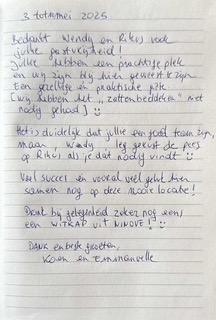 3 tot mei 2025
Bedankt Wendy en Rikus voor
jullie gastvrijheid!
Jullie hebben een prachtige plek
en wij zijn blij hier geweest te zijn
Een gezellige en praktische
(wij hebben het "zottenbeddeken" niet
nodig gehad) :)
Het is duidelijk dat jullie een goed team zijn,
maar, Wendy, leg gerust de pees
op Rikus als je dat nodig vindt :)
Veel succes en vooral veel geluk hier
samen nog op deze mooie locatie!
Drink bij gelegenheid zeker nog eens
een WITKAP uit NINOVE! :)
DANK en beste groeten,
Koen en Emmanuelle